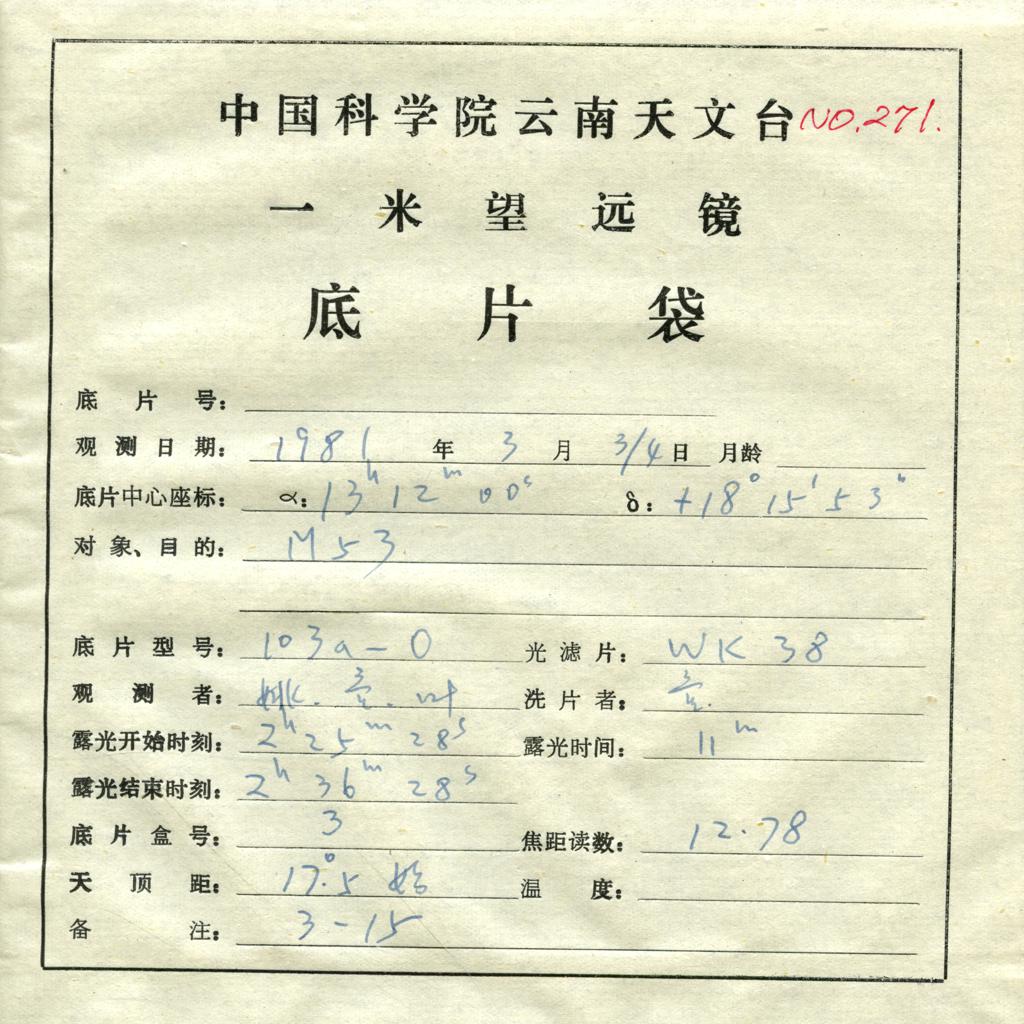 中国科学院云南天文台 NO.271.
一米望远镜
底片袋
底片号:
观测日期: 1981 年 3 月 3/4 日 月龄
底片中心座标: α: 13h 12m 00s δ: +18° 15′ 53″
对象、目的: M53
底片型号: 103a-O 光滤片: WK 38
观测者: 姚. . 叶 洗片者:
露光开始时刻: 2h 25m 28s 露光时间: 11m
露光结束时刻: 2h 36m 28s
底片盒号: 3 焦距读数: 12.78
天顶距: 17°.5 始 温度:
备注: 3-15